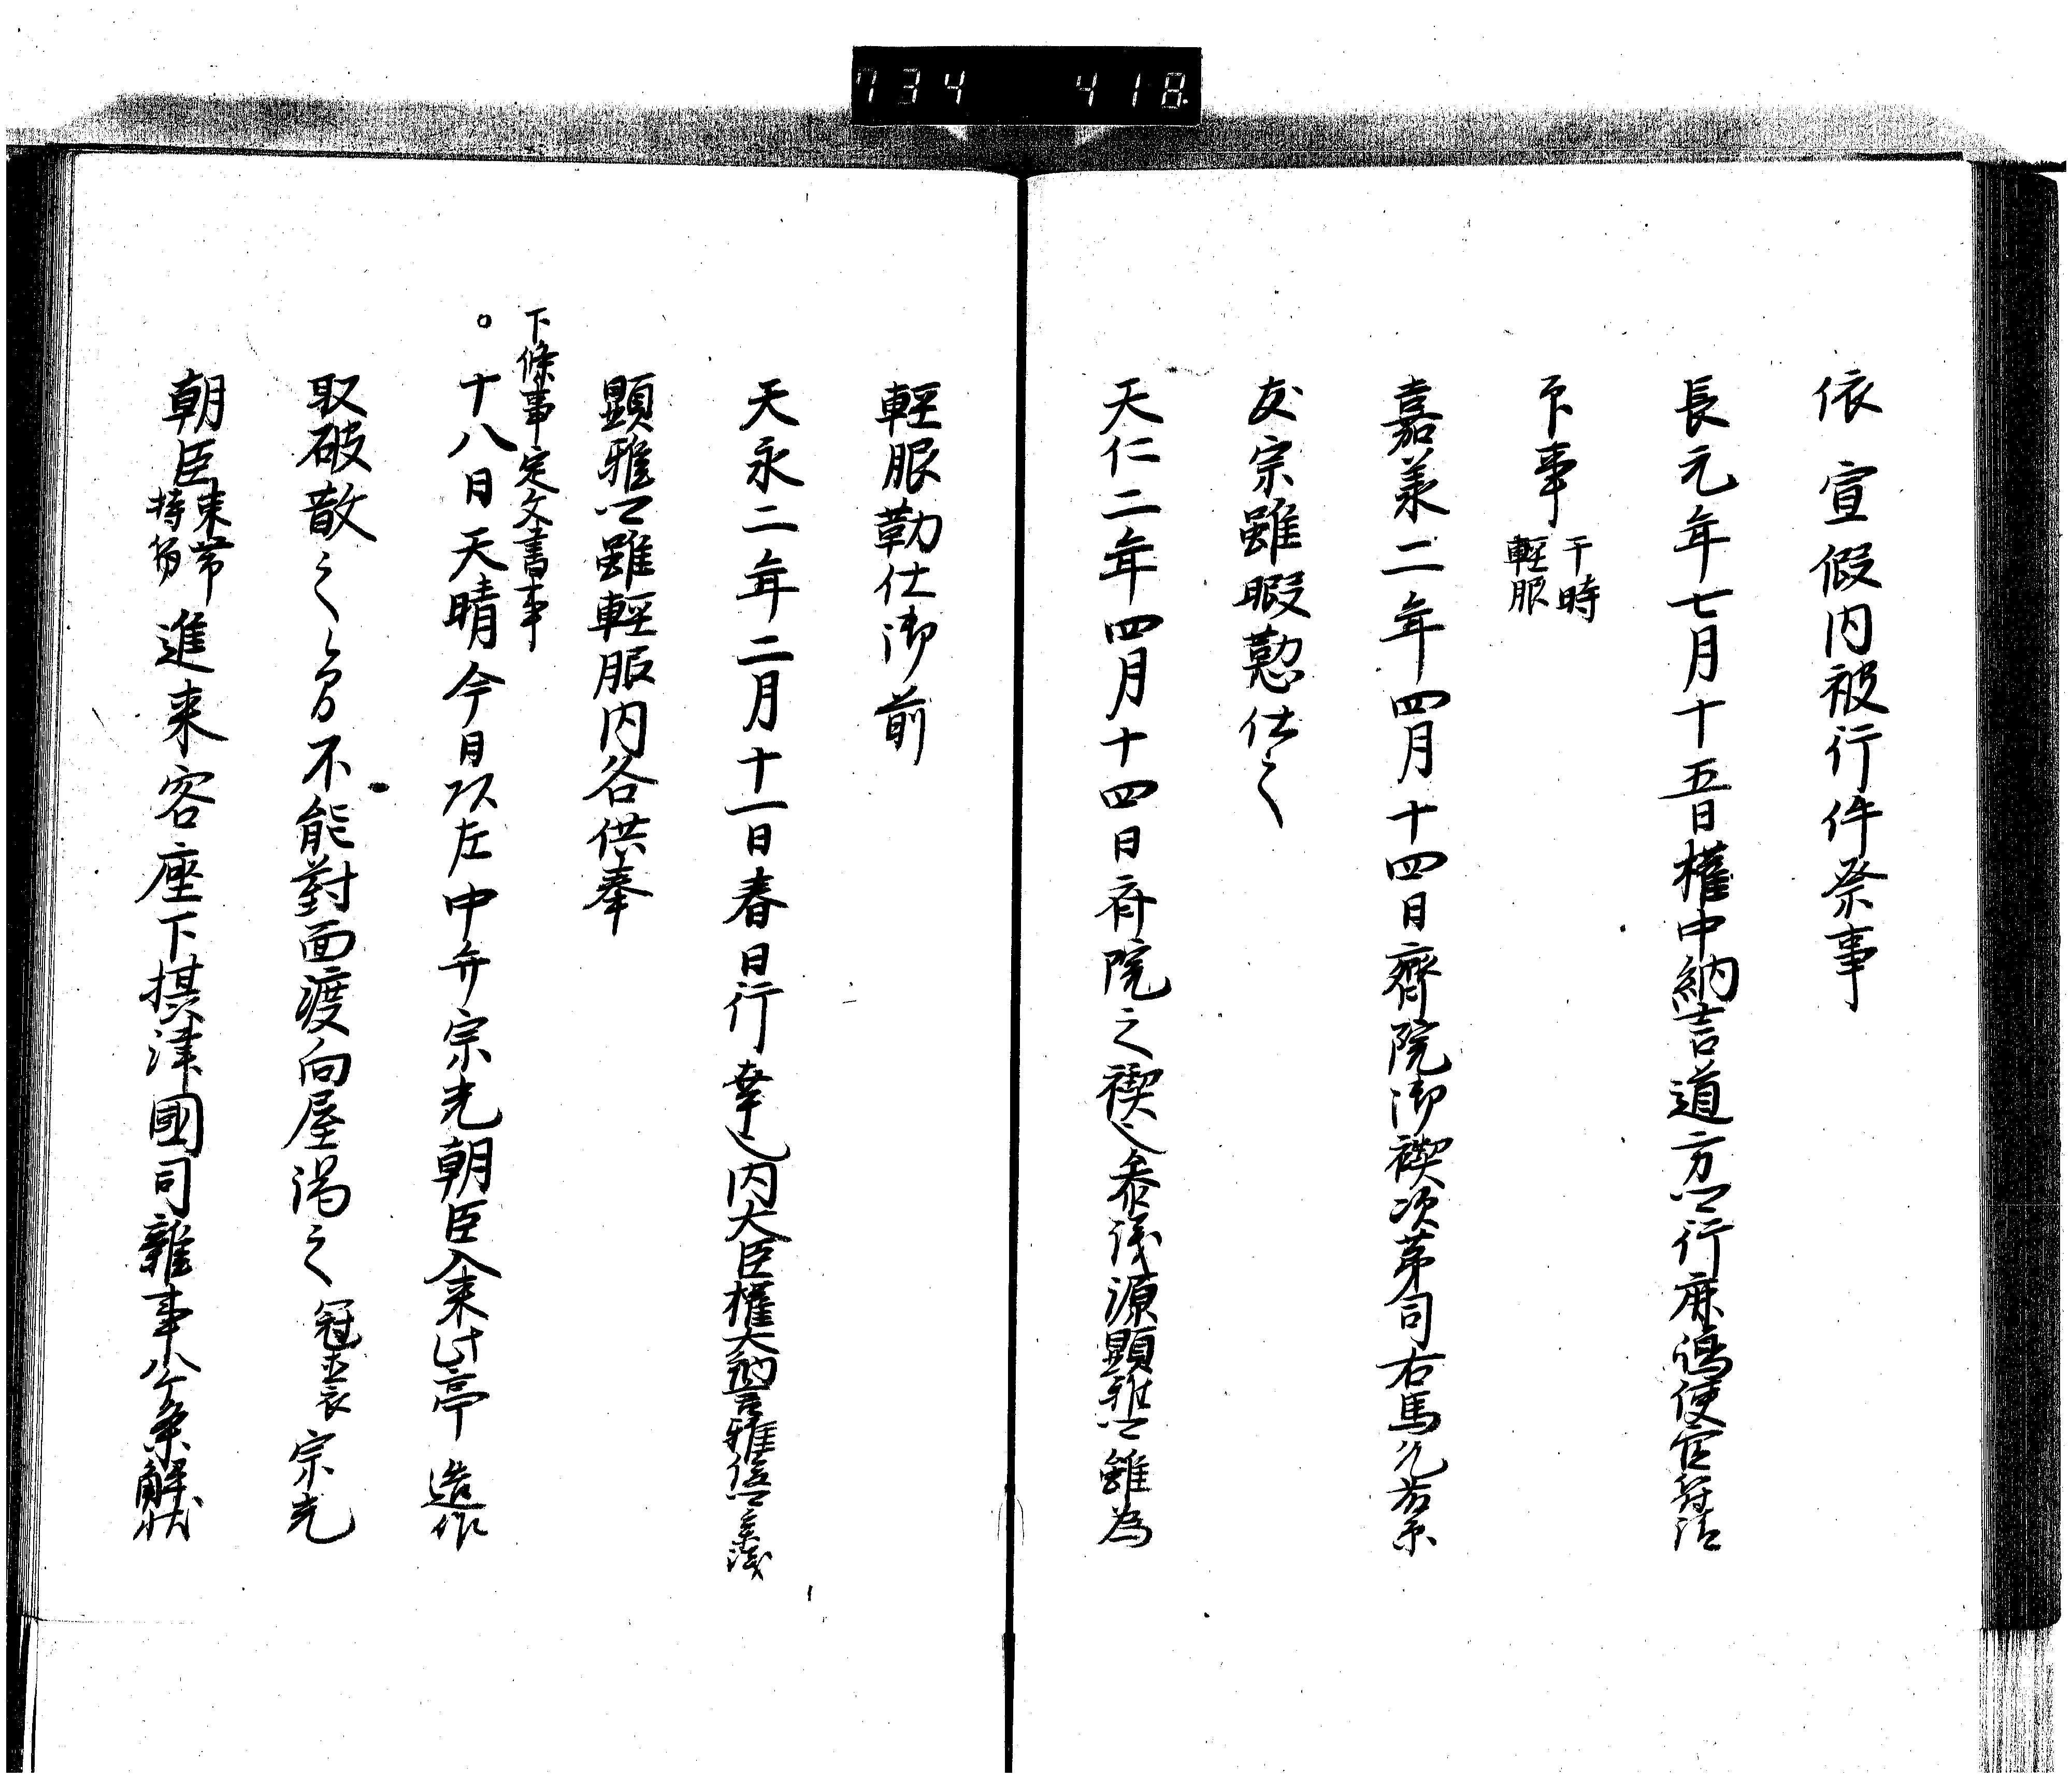 734 418
依 宣假内被行件祭事
長元年七月十五日權中納言道方卿行麻鴫使官符請
印事 于時輕服
嘉承二年四月十四日齊院御禊次第司右馬允藤原
友宗雖暇懃仕之
天仁二年四月十四日斎院之禊也參議源顯雅卿雖為
輕服勤仕御前
天永二年二月十一日春日行幸也内大臣權大納言雅俊卿參議
顯雅卿雖輕服内各供奉
下條事定文書事
。十八日天晴今日以左中弁宗光朝臣入来此亭造作
取破散之間不能對面渡向屋謁之 冠直衣 宗光
朝臣 束帶持笏 進来客座下摂津國司雜事八ケ条解状